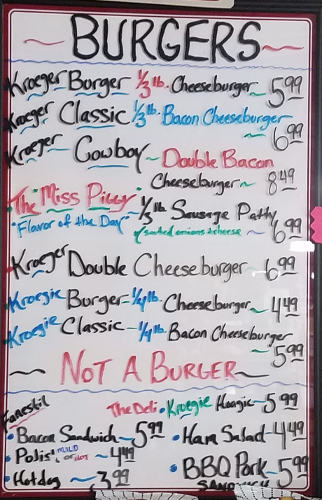 BURGERS
Kroeger Burger 1/3 lb. Cheeseburger 5.99
Kroeger Classic 1/3 lb. Bacon Cheeseburger 6.99
Kroeger Cowboy ~ Double Bacon
Cheeseburger ~ 8.49
The "Miss Piggy" 1/3 lb Sausage Patty
"Flavor of the Day" w/ sauteed onions & cheese ~ 6.99
Kroeger Double Cheeseburger 6.99
Kroegie Burger - 1/4 lb. Cheeseburger ~ 4.49
Kroegie Classic - 1/4 lb. Bacon Cheeseburger
5.99
~ NOT A BURGER ~
Fanestil
The Deli • Kroegie Hoagie - 5.99
• Bacon Sandwich ~ 5.99
• Ham Salad - 4.49
• Polish MILD or HOT ~ 4.49
• BBQ Pork - 5.99
• Hotdog ~ 3.99
SANDWICH